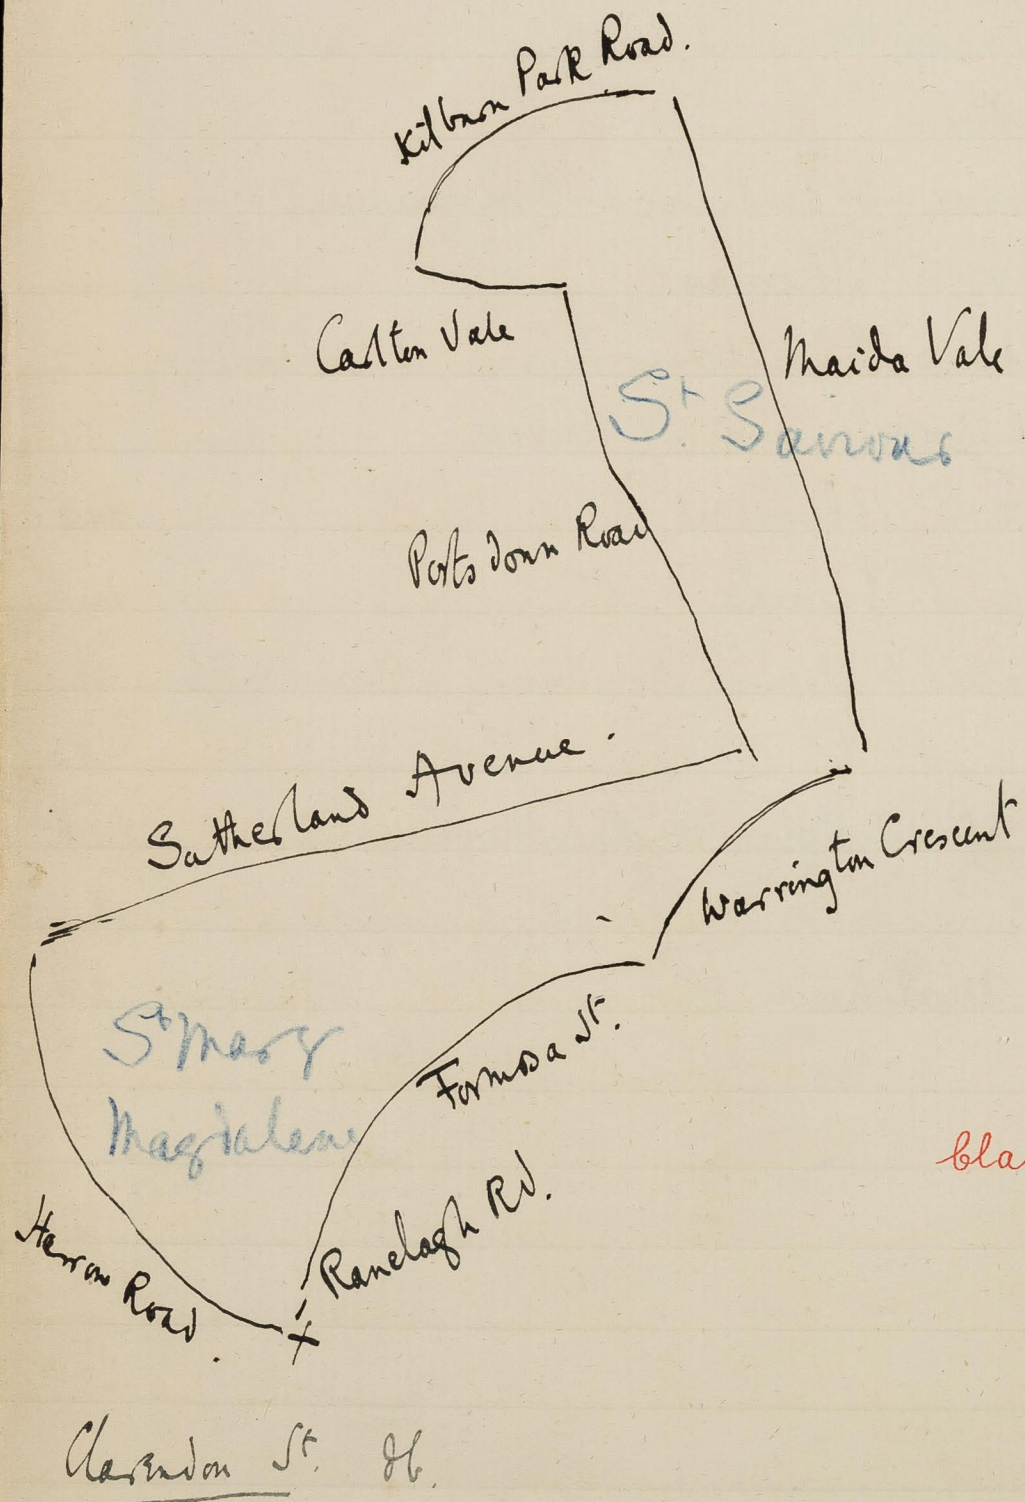 Kilburn Park Road.
Carlton Vale
Maida Vale
St. Saviours
Portsdown Road
Sutherland Avenue.
Warrington Crescent
St Mary
Magdalene
Formosa St.
bla
Ranelagh Rd.
Harrow Road.
Clarendon St.